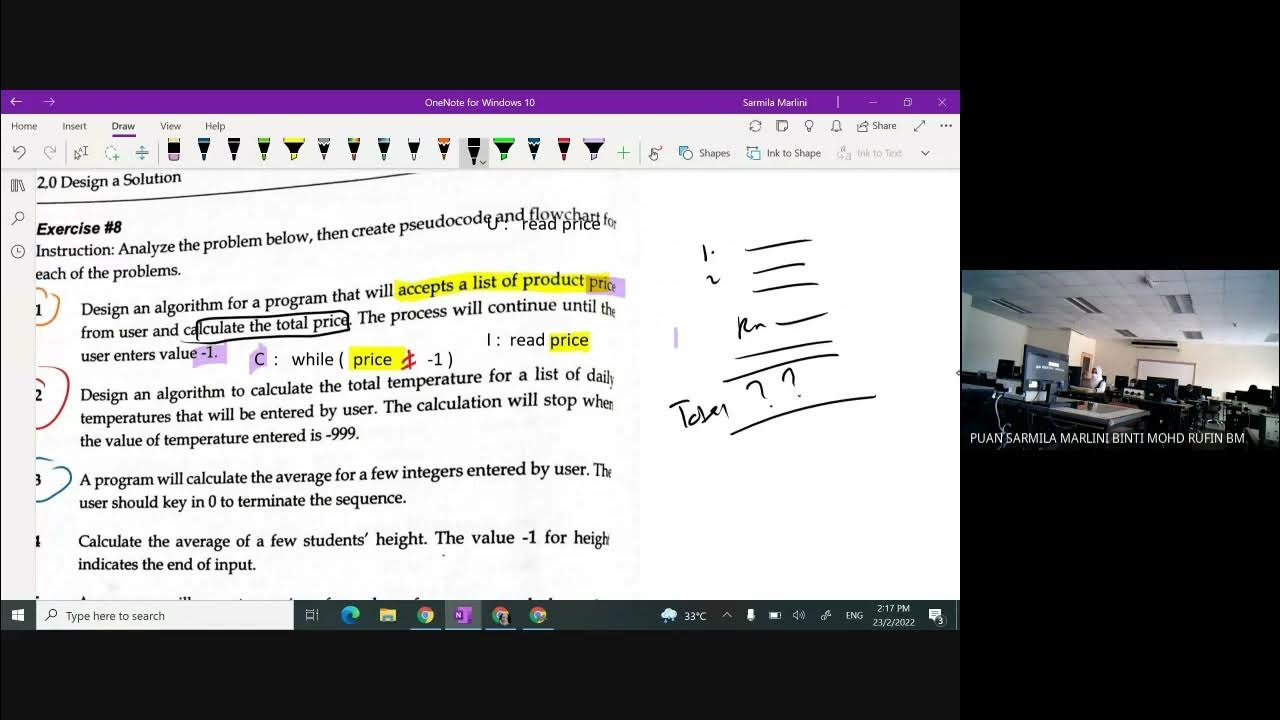 OneNote for Windows 10
Sarmila Marlini
Home Insert Draw View Help
Share
Shapes Ink to Shape Ink to Text
2.0 Design a Solution
Exercise #8
U : read price
Instruction: Analyze the problem below, then create pseudocode and flowchart for
each of the problems.
1 Design an algorithm for a program that will accepts a list of product price
from user and calculate the total price. The process will continue until the
user enters value -1.
I : read price
C : while ( price ≠ -1 )
2 Design an algorithm to calculate the total temperature for a list of daily
temperatures that will be entered by user. The calculation will stop when
the value of temperature entered is -999.
3 A program will calculate the average for a few integers entered by user. The
user should key in 0 to terminate the sequence.
4 Calculate the average of a few students' height. The value -1 for height
indicates the end of input.
1.
2
? ?
I
PUAN SARMILA MARLINI BINTI MOHD RUFIN BM
Type here to search
33°C
ENG
2:17 PM
23/2/2022
3